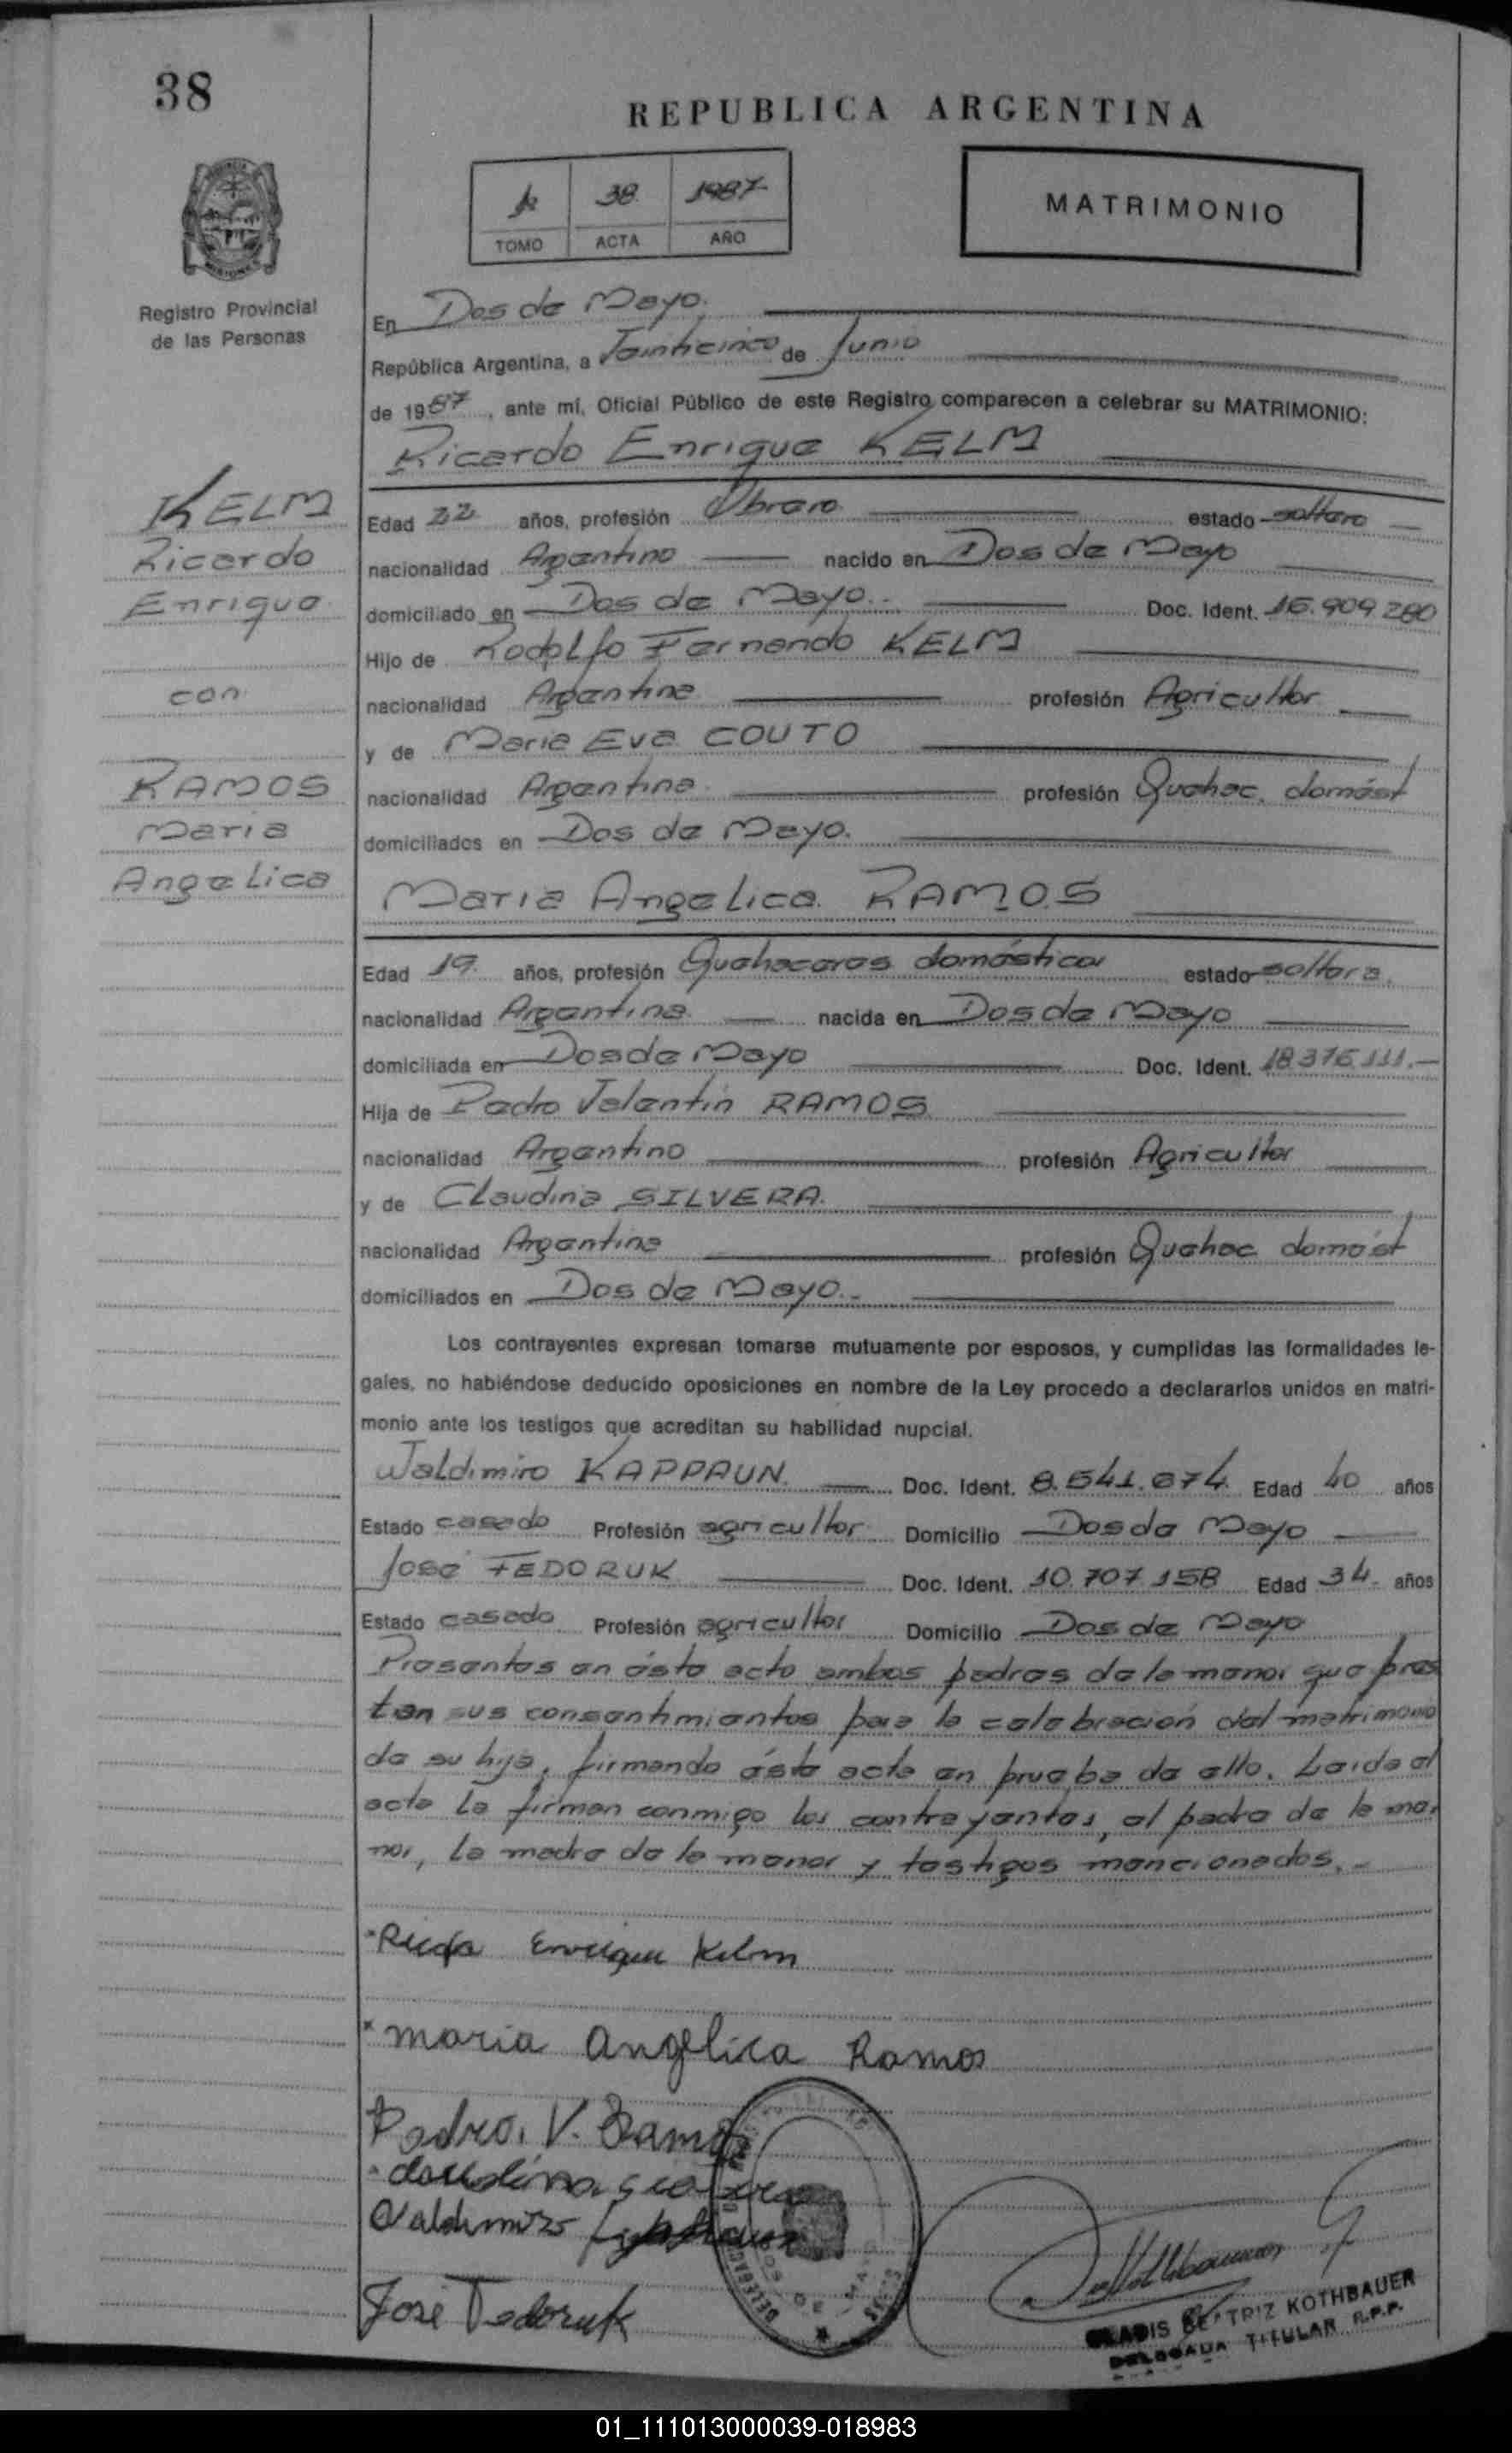 38
REPUBLICA ARGENTINA
1º 38 1987
TOMO ACTA AÑO
MATRIMONIO
Registro Provincial
de las Personas
En Dos de Mayo.
República Argentina, a Veinticinco de Junio
de 1987, ante mí, Oficial Público de este Registro comparecen a celebrar su MATRIMONIO:
Ricardo Enrique KELM
KELM
Ricardo
Enrique
con
RAMOS
Maria
Angelica
Edad 22 años, profesión Obrero estado soltero
nacionalidad Argentino nacido en Dos de Mayo
domiciliado en Dos de Mayo.. Doc. Ident. 16.909.280
Hijo de Rodolfo Fernando KELM
nacionalidad Argentina profesión Agricultor
y de Maria Eva COUTO
nacionalidad Argentina profesión Quehac. domést
domiciliados en Dos de Mayo.
Maria Angelica RAMOS
Edad 19 años, profesión Quehaceres domésticos estado soltera.
nacionalidad Argentina nacida en Dos de Mayo
domiciliada en Dos de Mayo Doc. Ident. 18.376.111.-
Hija de Pedro Valentín RAMOS
nacionalidad Argentino profesión Agricultor
y de Claudina SILVERA.
nacionalidad Argentina profesión Quehac domést
domiciliados en Dos de Mayo.-
Los contrayentes expresan tomarse mutuamente por esposos, y cumplidas las formalidades le-
gales, no habiéndose deducido oposiciones en nombre de la Ley procedo a declararlos unidos en matri-
monio ante los testigos que acreditan su habilidad nupcial.
Waldimiro KAPPAUN. Doc. Ident. 8.541.674. Edad 40 años
Estado casado Profesión agricultor Domicilio Dos de Mayo
José FEDORUK Doc. Ident. 10.707.158 Edad 34 años
Estado casado Profesión agricultor Domicilio Dos de Mayo
Presentes en ésto acto ambos padres de la menor que pres
tan sus consentimientos para la celebración del matrimonio
de su hija, firmando ésta acta en prueba de ello. Leída el
acta la firman conmigo los contrayentes, el padre de la me,
nor, la madre de la menor y testigos mencionados.-
Enrique Kelm
maria Angelica Ramos
Pedro. V. Ramos
Valdimiro
José Fedoruk
GLADIS BEATRIZ KOTHBAUER
DELEGADA TITULAR R.P.P.
01_111013000039-018983